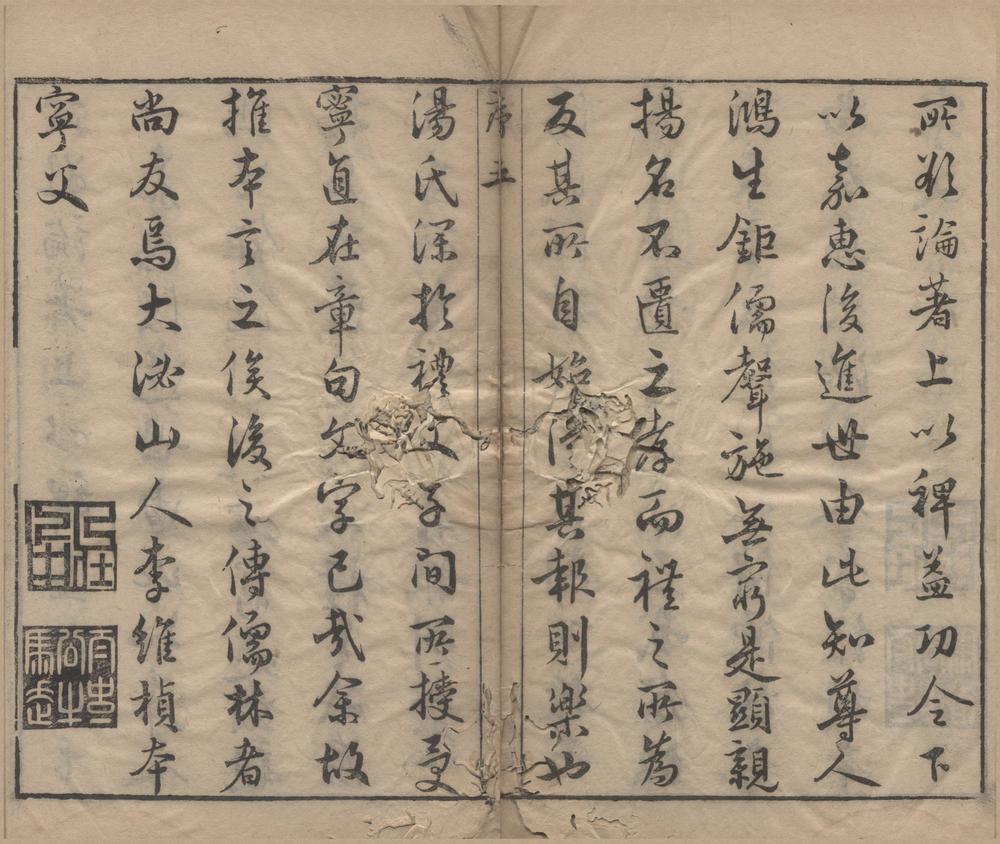 所欲論著上以裨益功令下
以嘉惠後進世由此知尊人
鴻生鉅儒聲施無窮是顯親
揚名不匱之孝而禮之所為
反其所自始得其報則樂也
序 五
湯氏深於禮父子間所授受
寧直在章句文字已哉余故
推本言之俟後之傳儒林者
尚友焉大泌山人李維楨本
寧父